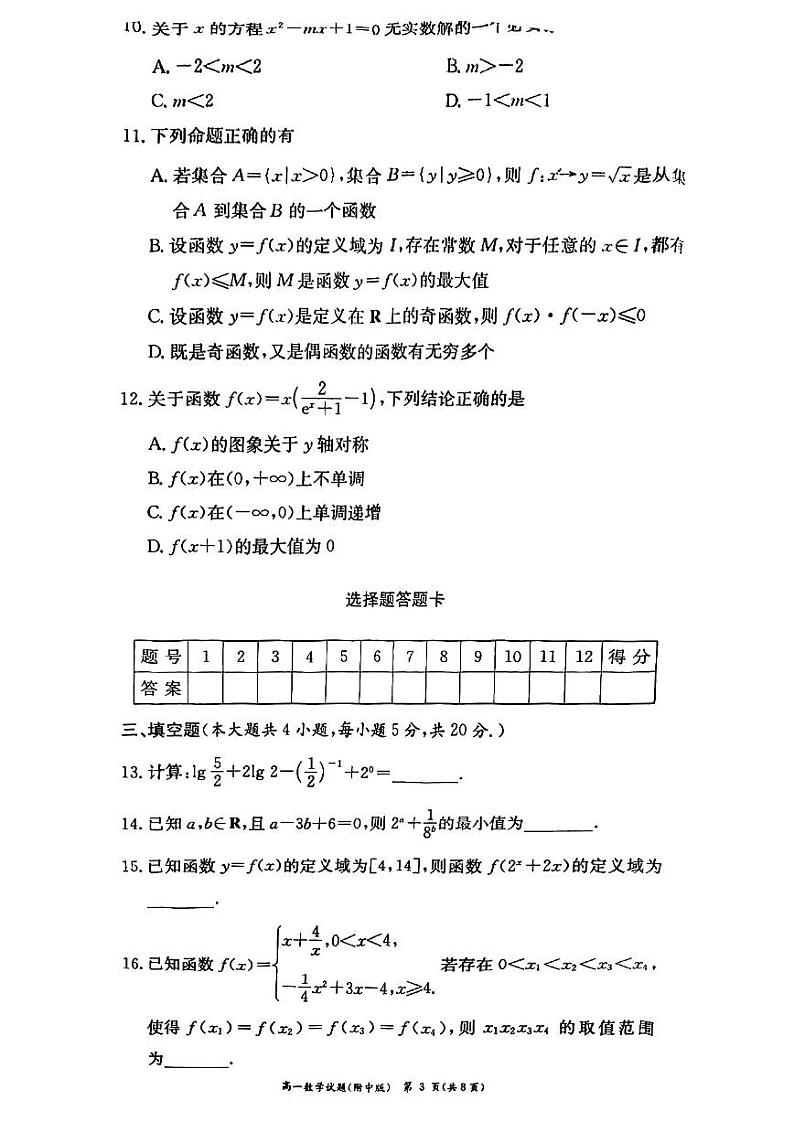 10. 关于 x 的方程 x²－mx＋1＝0 无实数解的一个
A. －2＜m＜2 B. m＞－2
C. m＜2 D. －1＜m＜1
11. 下列命题正确的有
A. 若集合 A＝{x|x＞0}，集合 B＝{y|y≥0}，则 f：x→y＝√x 是从集
合 A 到集合 B 的一个函数
B. 设函数 y＝f(x)的定义域为 I，存在常数 M，对于任意的 x∈I，都有
f(x)≤M，则 M 是函数 y＝f(x)的最大值
C. 设函数 y＝f(x)是定义在 R 上的奇函数，则 f(x)·f(－x)≤0
D. 既是奇函数，又是偶函数的函数有无穷多个
12. 关于函数 f(x)＝x(2/(eˣ＋1)－1)，下列结论正确的是
A. f(x)的图象关于 y 轴对称
B. f(x)在(0，＋∞)上不单调
C. f(x)在(－∞，0)上单调递增
D. f(x＋1)的最大值为 0
选择题答题卡
题 号 1 2 3 4 5 6 7 8 9 10 11 12 得 分
答 案
三、填空题(本大题共 4 小题，每小题 5 分，共 20 分．)
13. 计算：lg 5/2＋2lg 2－(1/2)⁻¹＋2⁰＝______．
14. 已知 a，b∈R，且 a－3b＋6＝0，则 2ᵃ＋1/8ᵇ的最小值为______．
15. 已知函数 y＝f(x)的定义域为[4，14]，则函数 f(2ˣ＋2x)的定义域为
______．
16. 已知函数 f(x)＝{x＋4/x，0＜x＜4，－1/4x²＋3x－4，x≥4. 若存在 0＜x₁＜x₂＜x₃＜x₄，
使得 f(x₁)＝f(x₂)＝f(x₃)＝f(x₄)，则 x₁x₂x₃x₄ 的取值范围
为______．
高一数学试题(附中版) 第 3 页(共 8 页)